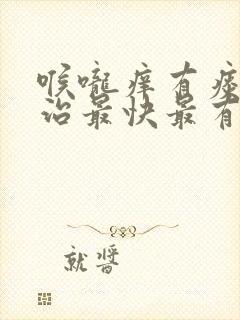 喉咙痒有痰
治最快最有
就医